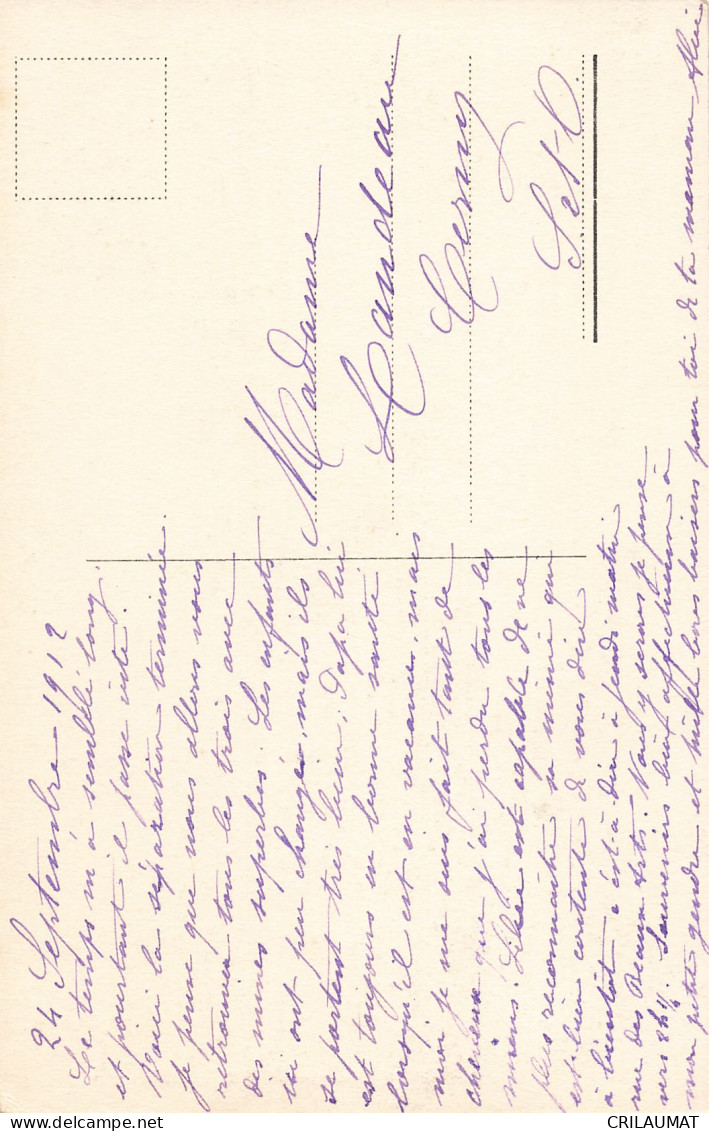 24 Septembre 1912
Le temps m'a semblé long
et pourtant il passe vite.
Voici la séparation terminée
je pense que nous allons vous
retrouver tous les trois avec
des mines superbes. Les enfants
ici ont peu changés, mais ils
se portent très bien; Papa lui
est toujours en bonne santé
lorsqu'il est en vacances, mais
moi je me suis fait tant de
cheveux que j'ai perdu tous les
miens. est capable de ne
plus reconnaître sa mémé qui
est bien contente de vous dire
à bientôt c'est-à-dire à jeudi matin
rue des Beaux Arts. Nous y serons je pense
vers 8h½. Souvenirs bien affectueux à
mon petit gendre et mille bons baisers pour toi de ta maman
Madame
Landeau
Cerny
S et O.
CRILAUMAT